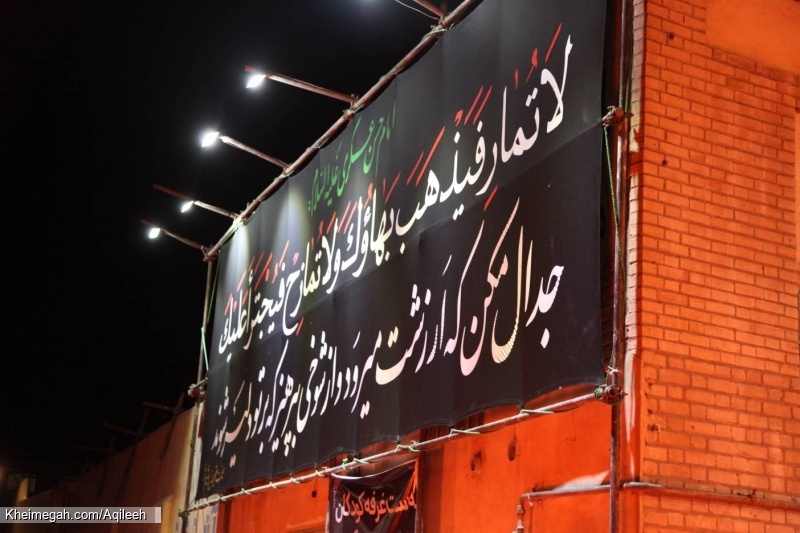 امام حسن عسکری علیه السلام:
لا تُمارِ فَیَذْهَبَ بَهاؤُكَ وَلا تُمازِحْ فَیُجْتَرَأَ عَلَیْكَ
جدال مکن که ارزشت میرود و از شوخی بپرهیز که بر تو دلیر شوند
غرفه کودکان
Kheimegah.com/Aqileeh